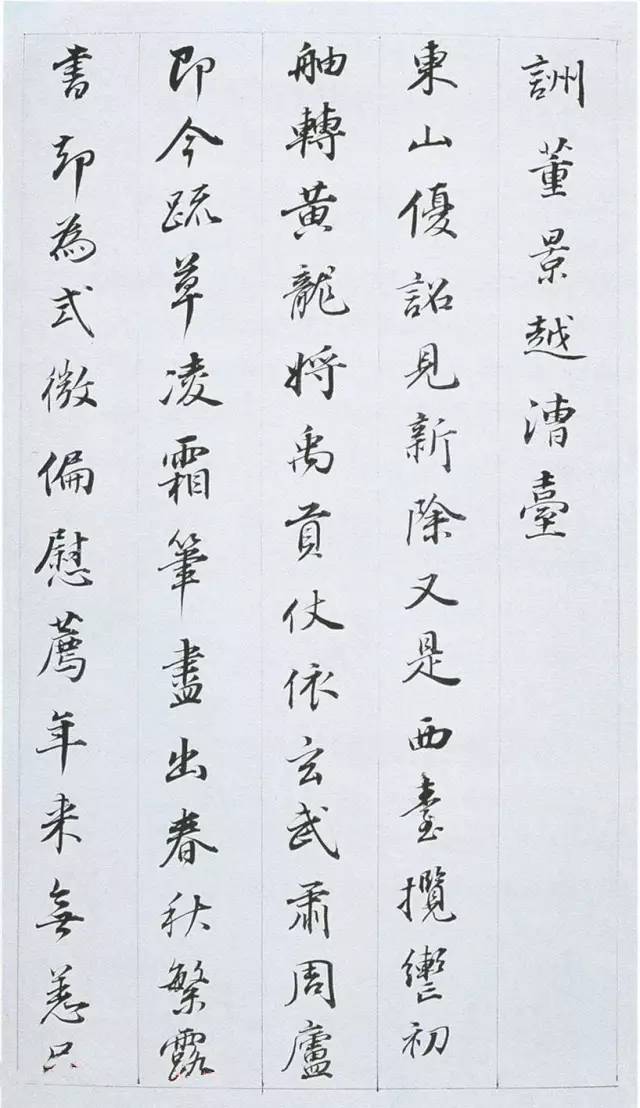 詶董景越漕臺
東山優詔見新除又是西臺攬轡初
舳轉黃龍將禹貢仗依玄武肅周廬
即今疏草凌霜筆盡出春秋繁露
書却為式微偏慰薦年来無恙只